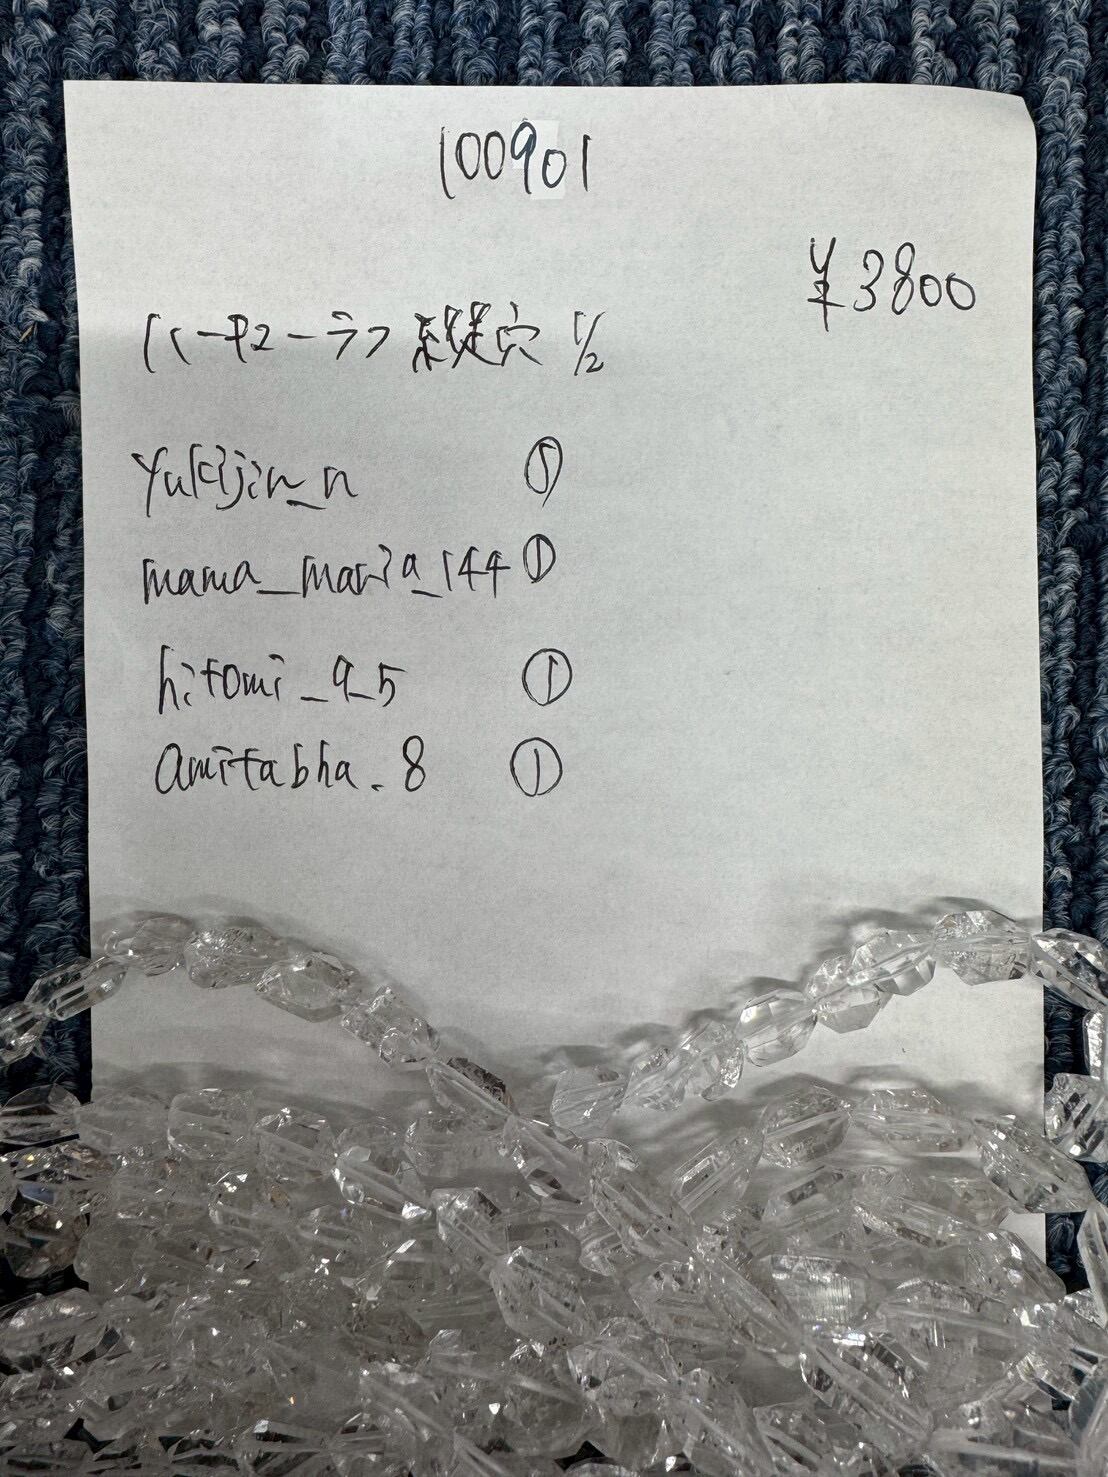 100901
¥3800
ハーキマーラフ 縦穴 1/2
yukijin_n ①
mama_maria_144 ①
hitomi_9_5 ①
amitabha.8 ①